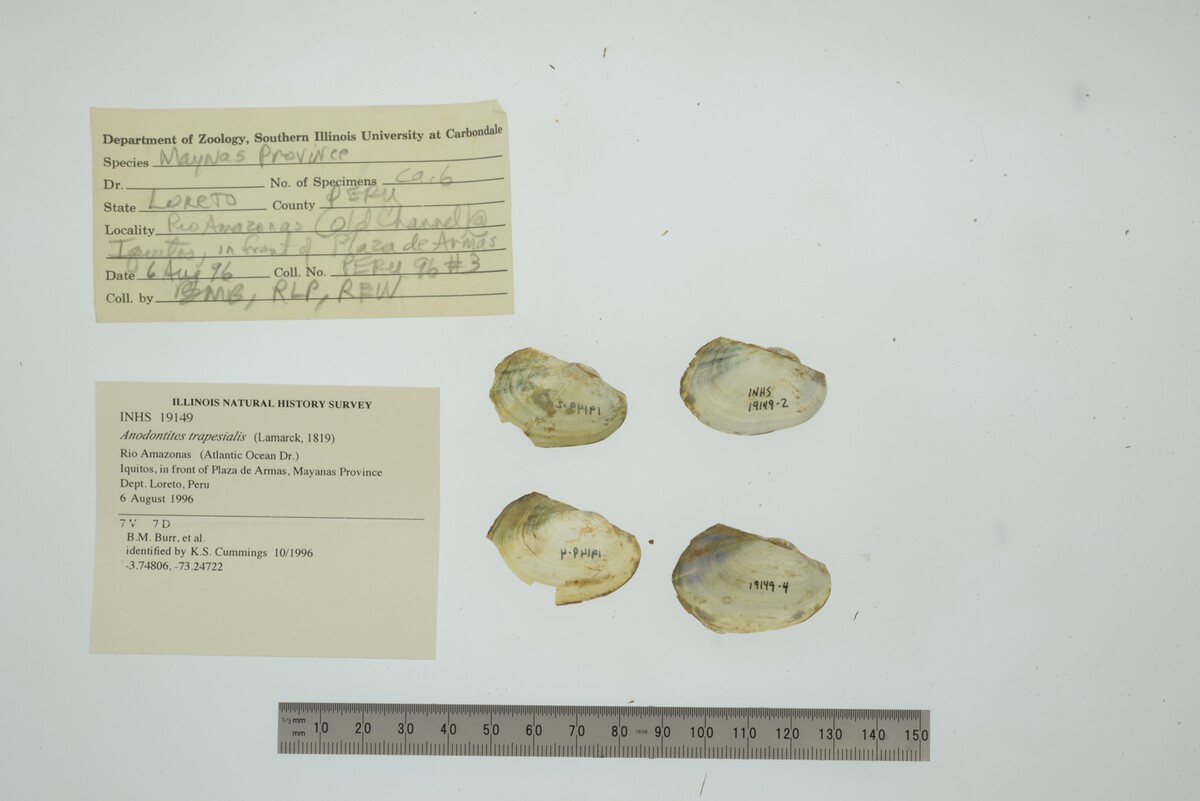 Department of Zoology, Southern Illinois University at Carbondale
Species Maynas Province
Dr. No. of Specimens ca. 6
State Loreto County PERU
Locality Rio Amazonas (old Channel) @
Iquitos, in front of Plaza de Armas
Date 6 Aug 96 Coll. No. PERU 96 #3
Coll. by BMB, RLP, REW
ILLINOIS NATURAL HISTORY SURVEY
INHS 19149
Anodontites trapesialis (Lamarck, 1819)
Rio Amazonas (Atlantic Ocean Dr.)
Iquitos, in front of Plaza de Armas, Mayanas Province
Dept. Loreto, Peru
6 August 1996
7 V 7 D
B.M. Burr, et al.
identified by K.S. Cummings 10/1996
-3.74806, -73.24722
19149-2
INHS
19149-2
19149-4
19149-4
1/2 mm
mm
10 20 30 40 50 60 70 80 90 100 110 120 130 140 150